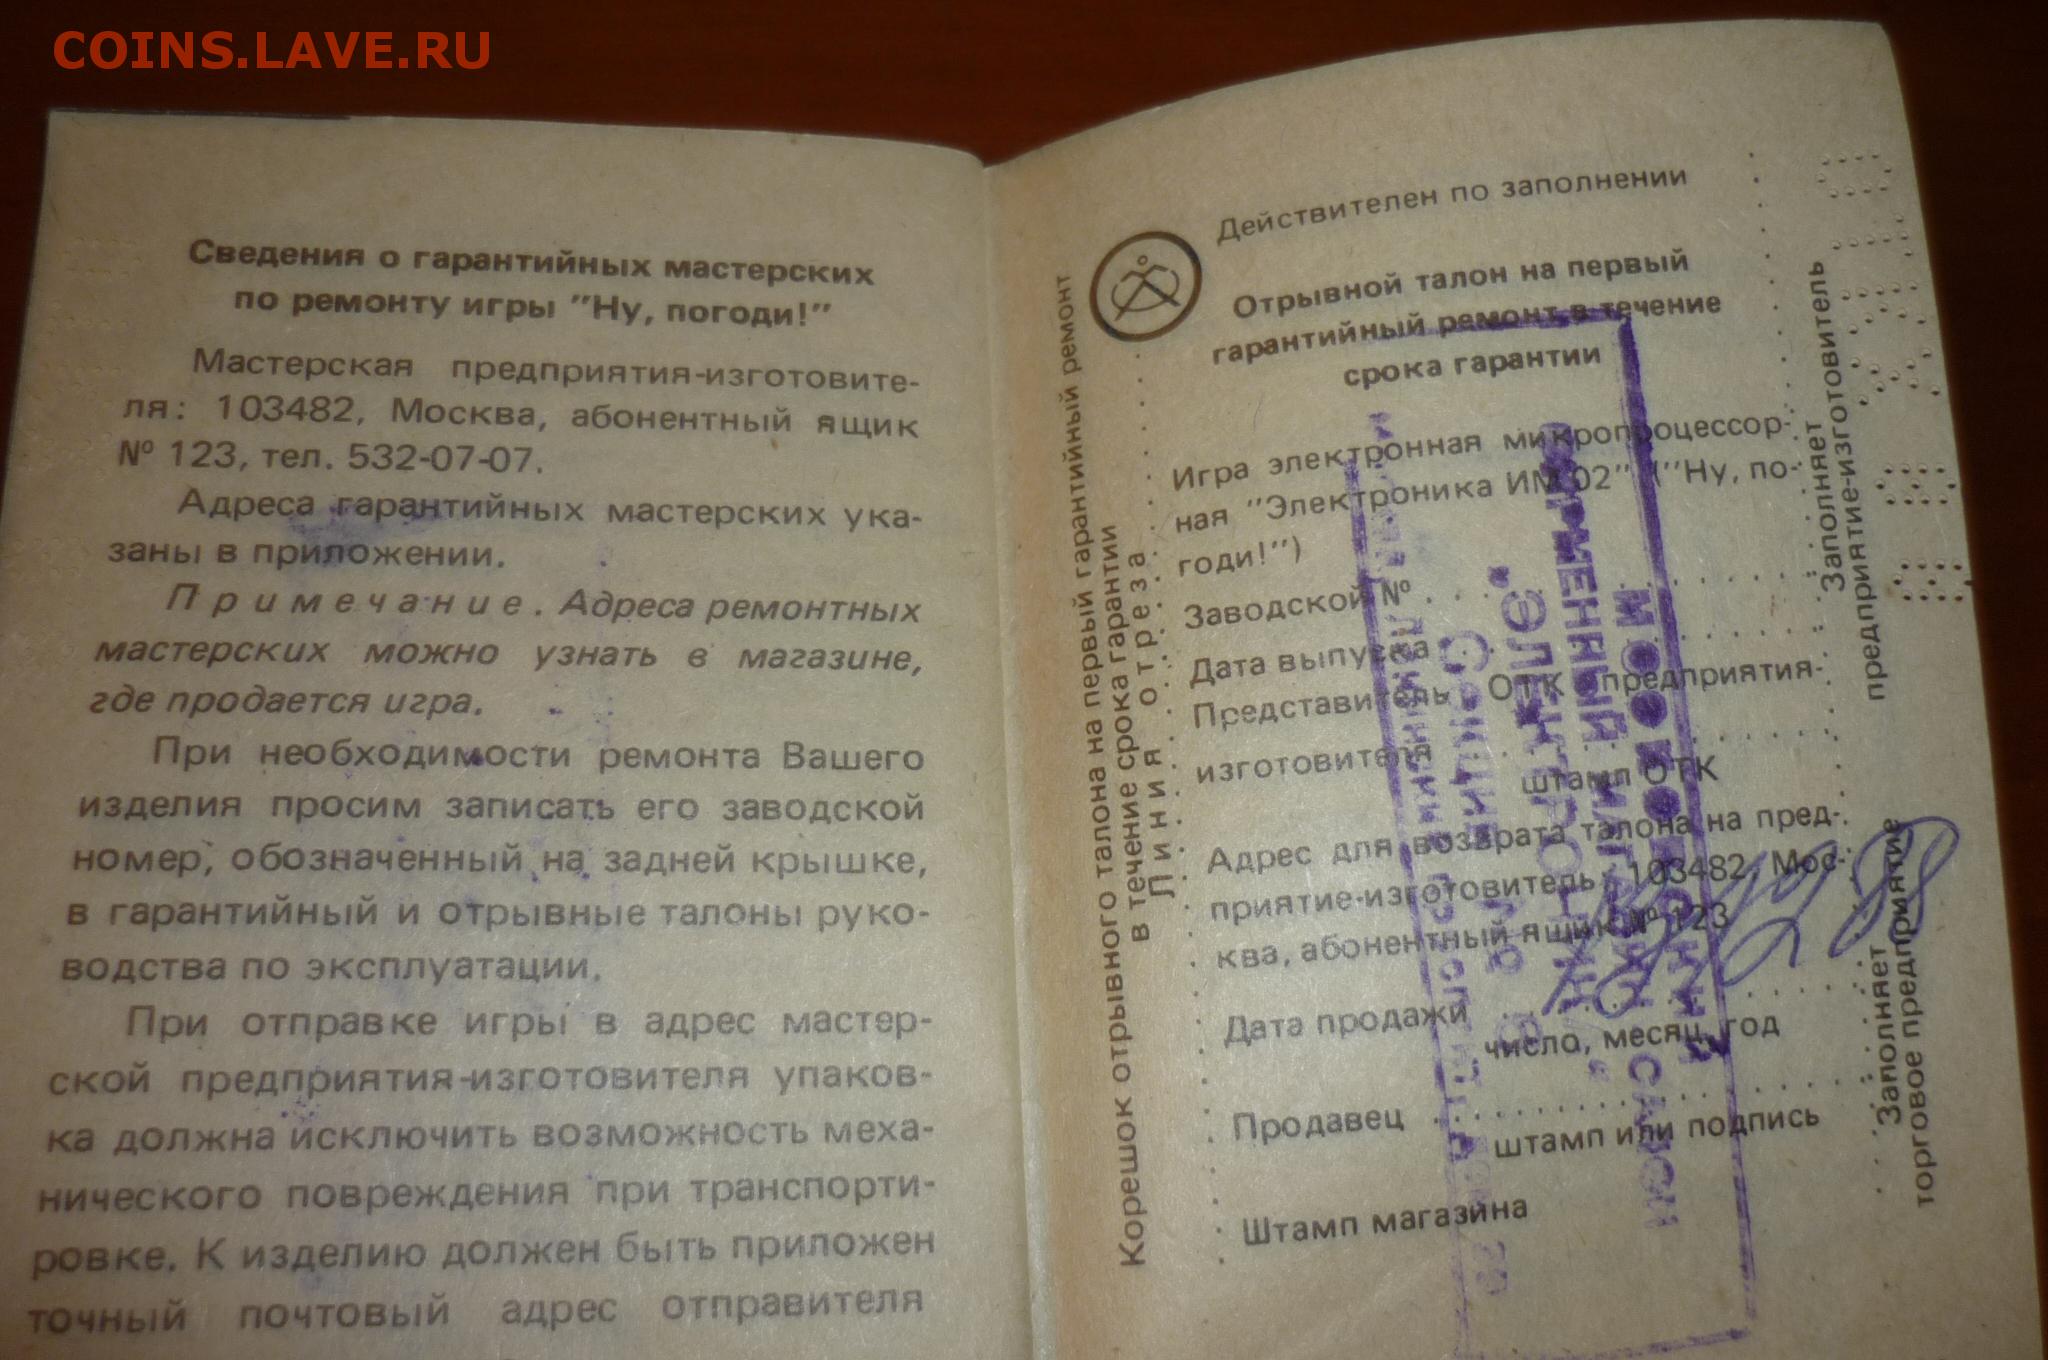 COINS.LAVE.RU
Сведения о гарантийных мастерских
по ремонту игры "Ну, погоди!"
Мастерская предприятия-изготовите-
ля: 103482, Москва, абонентный ящик
№ 123, тел. 532-07-07.
Адреса гарантийных мастерских ука-
заны в приложении.
Примечание. Адреса ремонтных
мастерских можно узнать в магазине,
где продается игра.
При необходимости ремонта Вашего
изделия просим записать его заводской
номер, обозначенный на задней крышке,
в гарантийный и отрывные талоны руко-
водства по эксплуатации.
При отправке игры в адрес мастер-
ской предприятия-изготовителя упаков-
ка должна исключить возможность меха-
нического повреждения при транспорти-
ровке. К изделию должен быть приложен
точный почтовый адрес отправителя
Корешок отрывного талона на первый гарантийный ремонт
в течение срока гарантии
Линия отреза
Действителен по заполнении
Отрывной талон на первый
гарантийный ремонт в течение
срока гарантии
Игра электронная микропроцессор-
ная "Электроника ИМ 02" ("Ну, по-
годи!")
Заводской №
Дата выпуска
Представитель ОТК предприятия-
изготовителя
штамп ОТК
Адрес для возврата талона на пред-
приятие-изготовитель: 103482, Мос-
ква, абонентный ящик № 123
Дата продажи
число, месяц, год
Продавец
штамп или подпись
Штамп магазина
Заполняет
предприятие-изготовитель
Заполняет
торговое предприятие
ФИРМЕННЫЙ МАГАЗИН САЛОН
"ЭЛЕКТРОНИКА"
Секция №